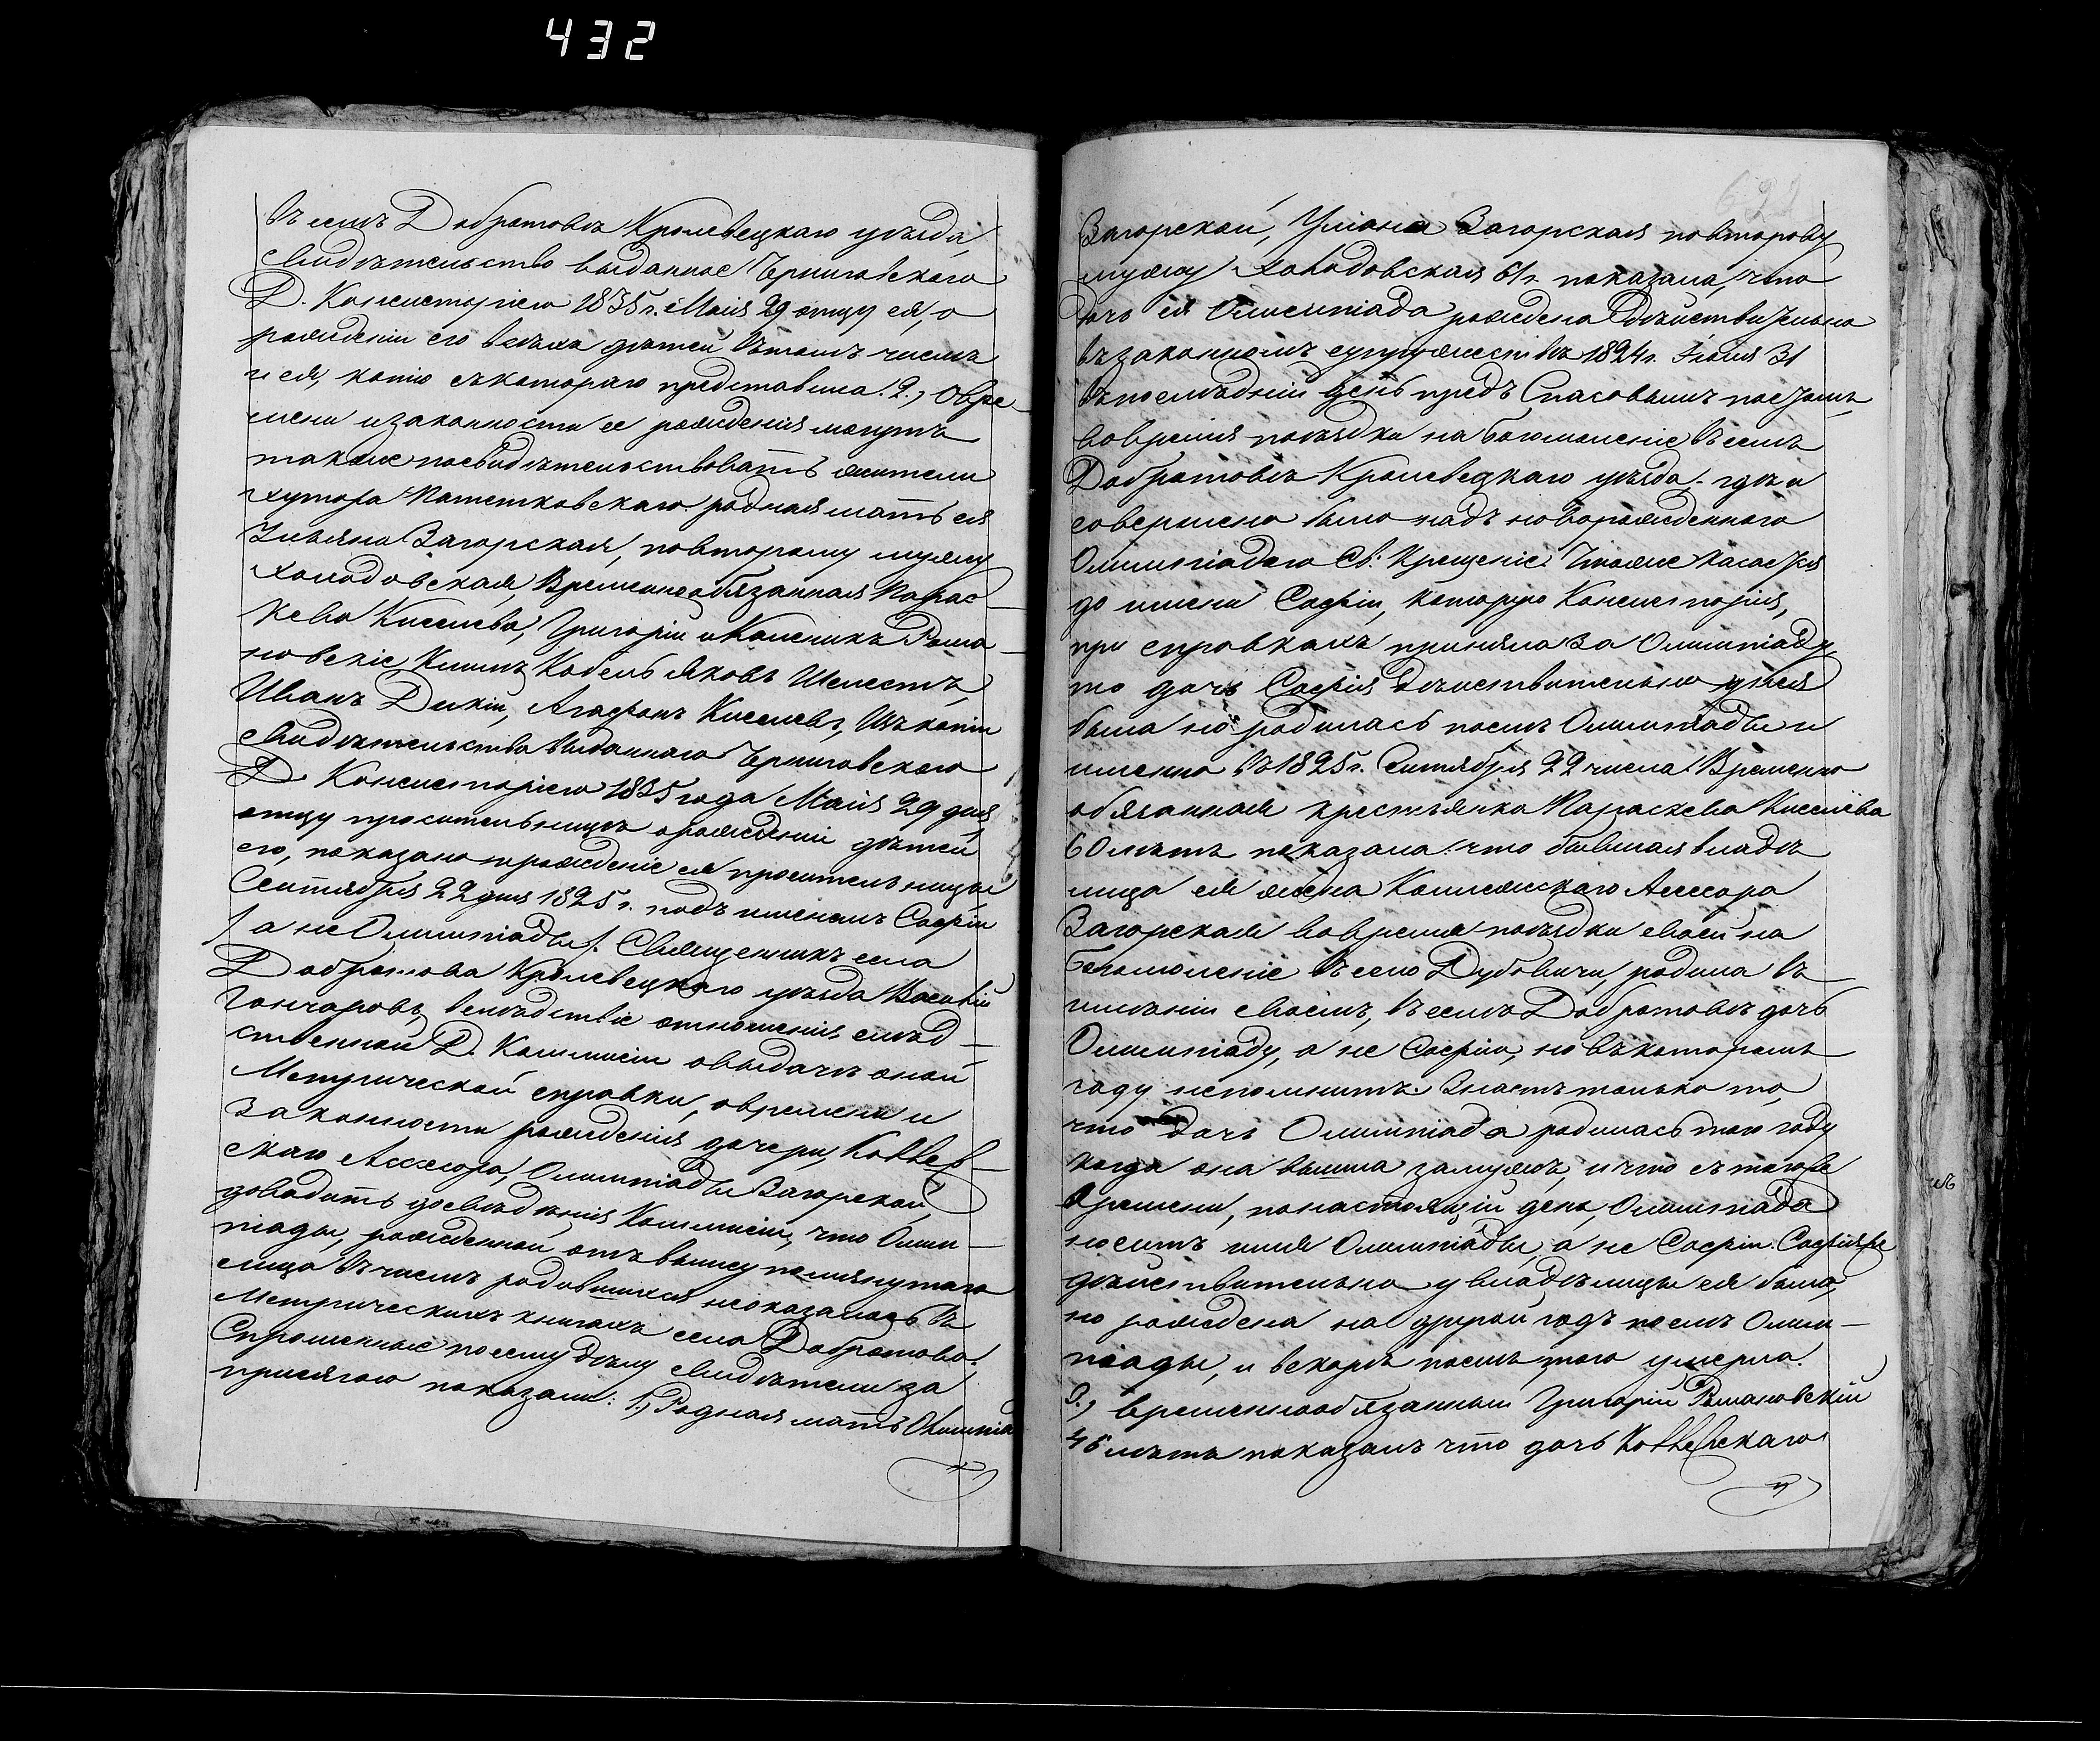 432
въ селѣ Добротовѣ Кролевецкаго уѣзда,
свидѣтельство выданное Черниговскою
Д. Консисторіею 1835 г. Маія 29 отцу ея, о
рожденіи его всѣхъ дѣтей въ томъ числѣ
и ея, копію съ котораго представила. 2., О вре-
мени и законности ее рожденія могутъ
также посвидѣтельствовать жители
хутора Потетковскаго родная мать ея
Ульяна Загорская, по второму мужу
Холодовская, Временнообязанная Парас-
кева Киселева, Григорій и Каленикъ Рома-
новскіе, Климъ Кобель, Яковъ Шелестъ,
Иванъ Дикій, Агафонъ Киселевъ, Изъ копіи
свидѣтельства выданнаго Черниговскою
Д. Консисторіею 1835 года Маія 29 дня,
отцу просительницы о рожденіи дѣтей
его, показано рожденіе ея просительницы
Сентября 22 дня 1825 г. подъ именемъ Софіи
/ а не Олимпіады /. Священникъ села
Добротова Кролевецкаго уѣзда Василій
Гончаровъ, вслѣдствіе отношенія слѣд-
ственной Д. Коммисіи о выдачѣ оной
Метрической справки, о времени и
законности рожденія дочери, Коллеж-
скаго Ассесора, Олимпіады Загорской,
доводитъ до свѣдѣнія Коммисіи, что Олим-
піады, рожденной отъ выше упомянутаго
лица въ числѣ родовшихся не оказалось въ
Метрическихъ книгахъ села Добротова.
Спрошенные по сему дѣлу свидѣтели за
присягою показали: 1., Родная мать Олимпіа
622
Загорской, Уліана Загорская по второму
мужу Холодовская 61 г. показала, что
дочь ея Олимпіада рождена дѣйствительно
въ законномъ супружествѣ 1824 г. Іюля 31
въ послѣдній день предъ Спасовымъ постомъ,
во время поѣздки на богомоленіе въ селѣ
Добротовѣ Кролевецкаго уѣзда - гдѣ и
совершено было надъ новорожденною
Олимпіадою Св. Крещеніе. Что же касается
до имени Софіи, которую Консисторія,
при справкахъ приняла за Олимпіаду,
то дочь Софія дѣйствительно у нея
была но родилась послѣ Олимпіады и
именно въ 1825 г. Сентября 22 числа. Временно
обязанная крестьянка Параскева Киселёва
60 лѣтъ показала: что бывшая владѣ
лица ея жена Коллежскаго Ассесора
Загорская во время поѣздки своей на
богомоленіе въ село Дубовичи, родила въ
имѣніи своемъ, въ селѣ Добротовѣ дочь
Олимпіаду, а не Софію, но въ которомъ
году не помнитъ. Знаетъ только то,
что дочь Олимпіада родилась того году
когда она вышла замужъ, и что съ того же
времени, по настоящій день, Олимпіада
носитъ имя Олимпіады, а не Софіи. Софія же
дѣйствительно у владѣлицы ея была,
но рождена на другой годъ послѣ Олим-
піады, и вскорѣ послѣ того умерла.
3., Временнообязанный Григорій Романовскій
45 лѣтъ показалъ что дочь Коллежскаго